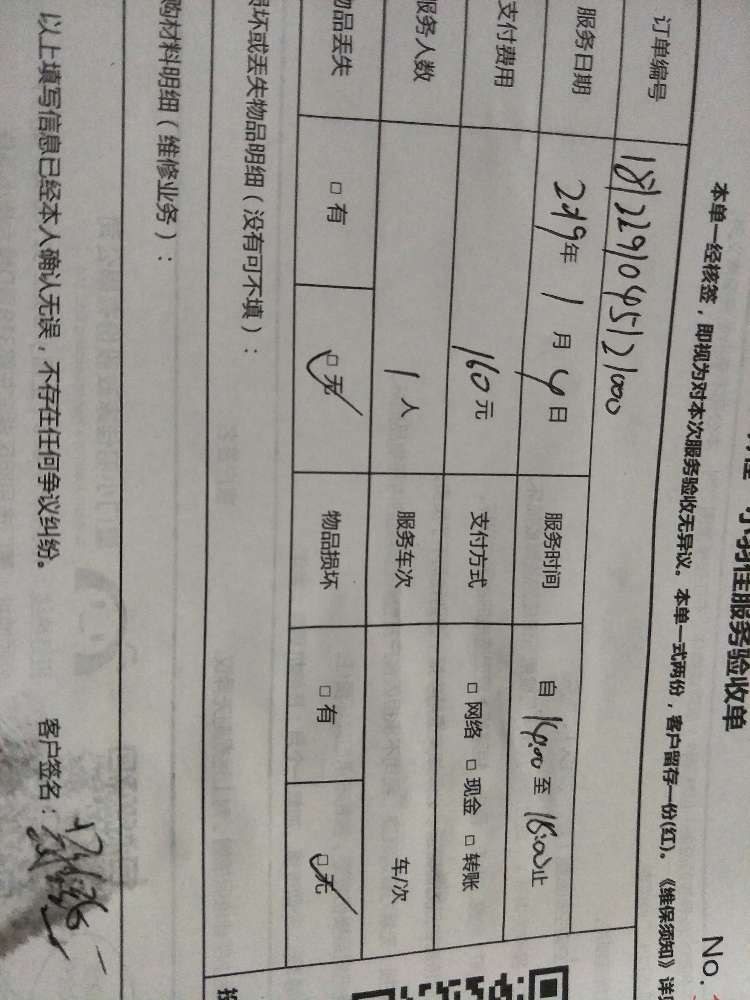 小羽佳服务验收单
No.
本单一经核签，即视为对本次服务验收无异议。本单一式两份，客户留存一份(红)。《维保须知》详见
订单编号 1812291045121000
服务日期 2019年 1 月 4 日 服务时间 自 14:00 至 18:00 止
支付费用 160元 支付方式 □网络 □现金 □转账
服务人数 1 人 服务车次 车/次
物品丢失 □有 □无 物品损坏 □有 □无
损坏或丢失物品明细（没有可不填）：
购材料明细（维修业务）：
以上填写信息已经本人确认无误，不存在任何争议纠纷。 客户签名：